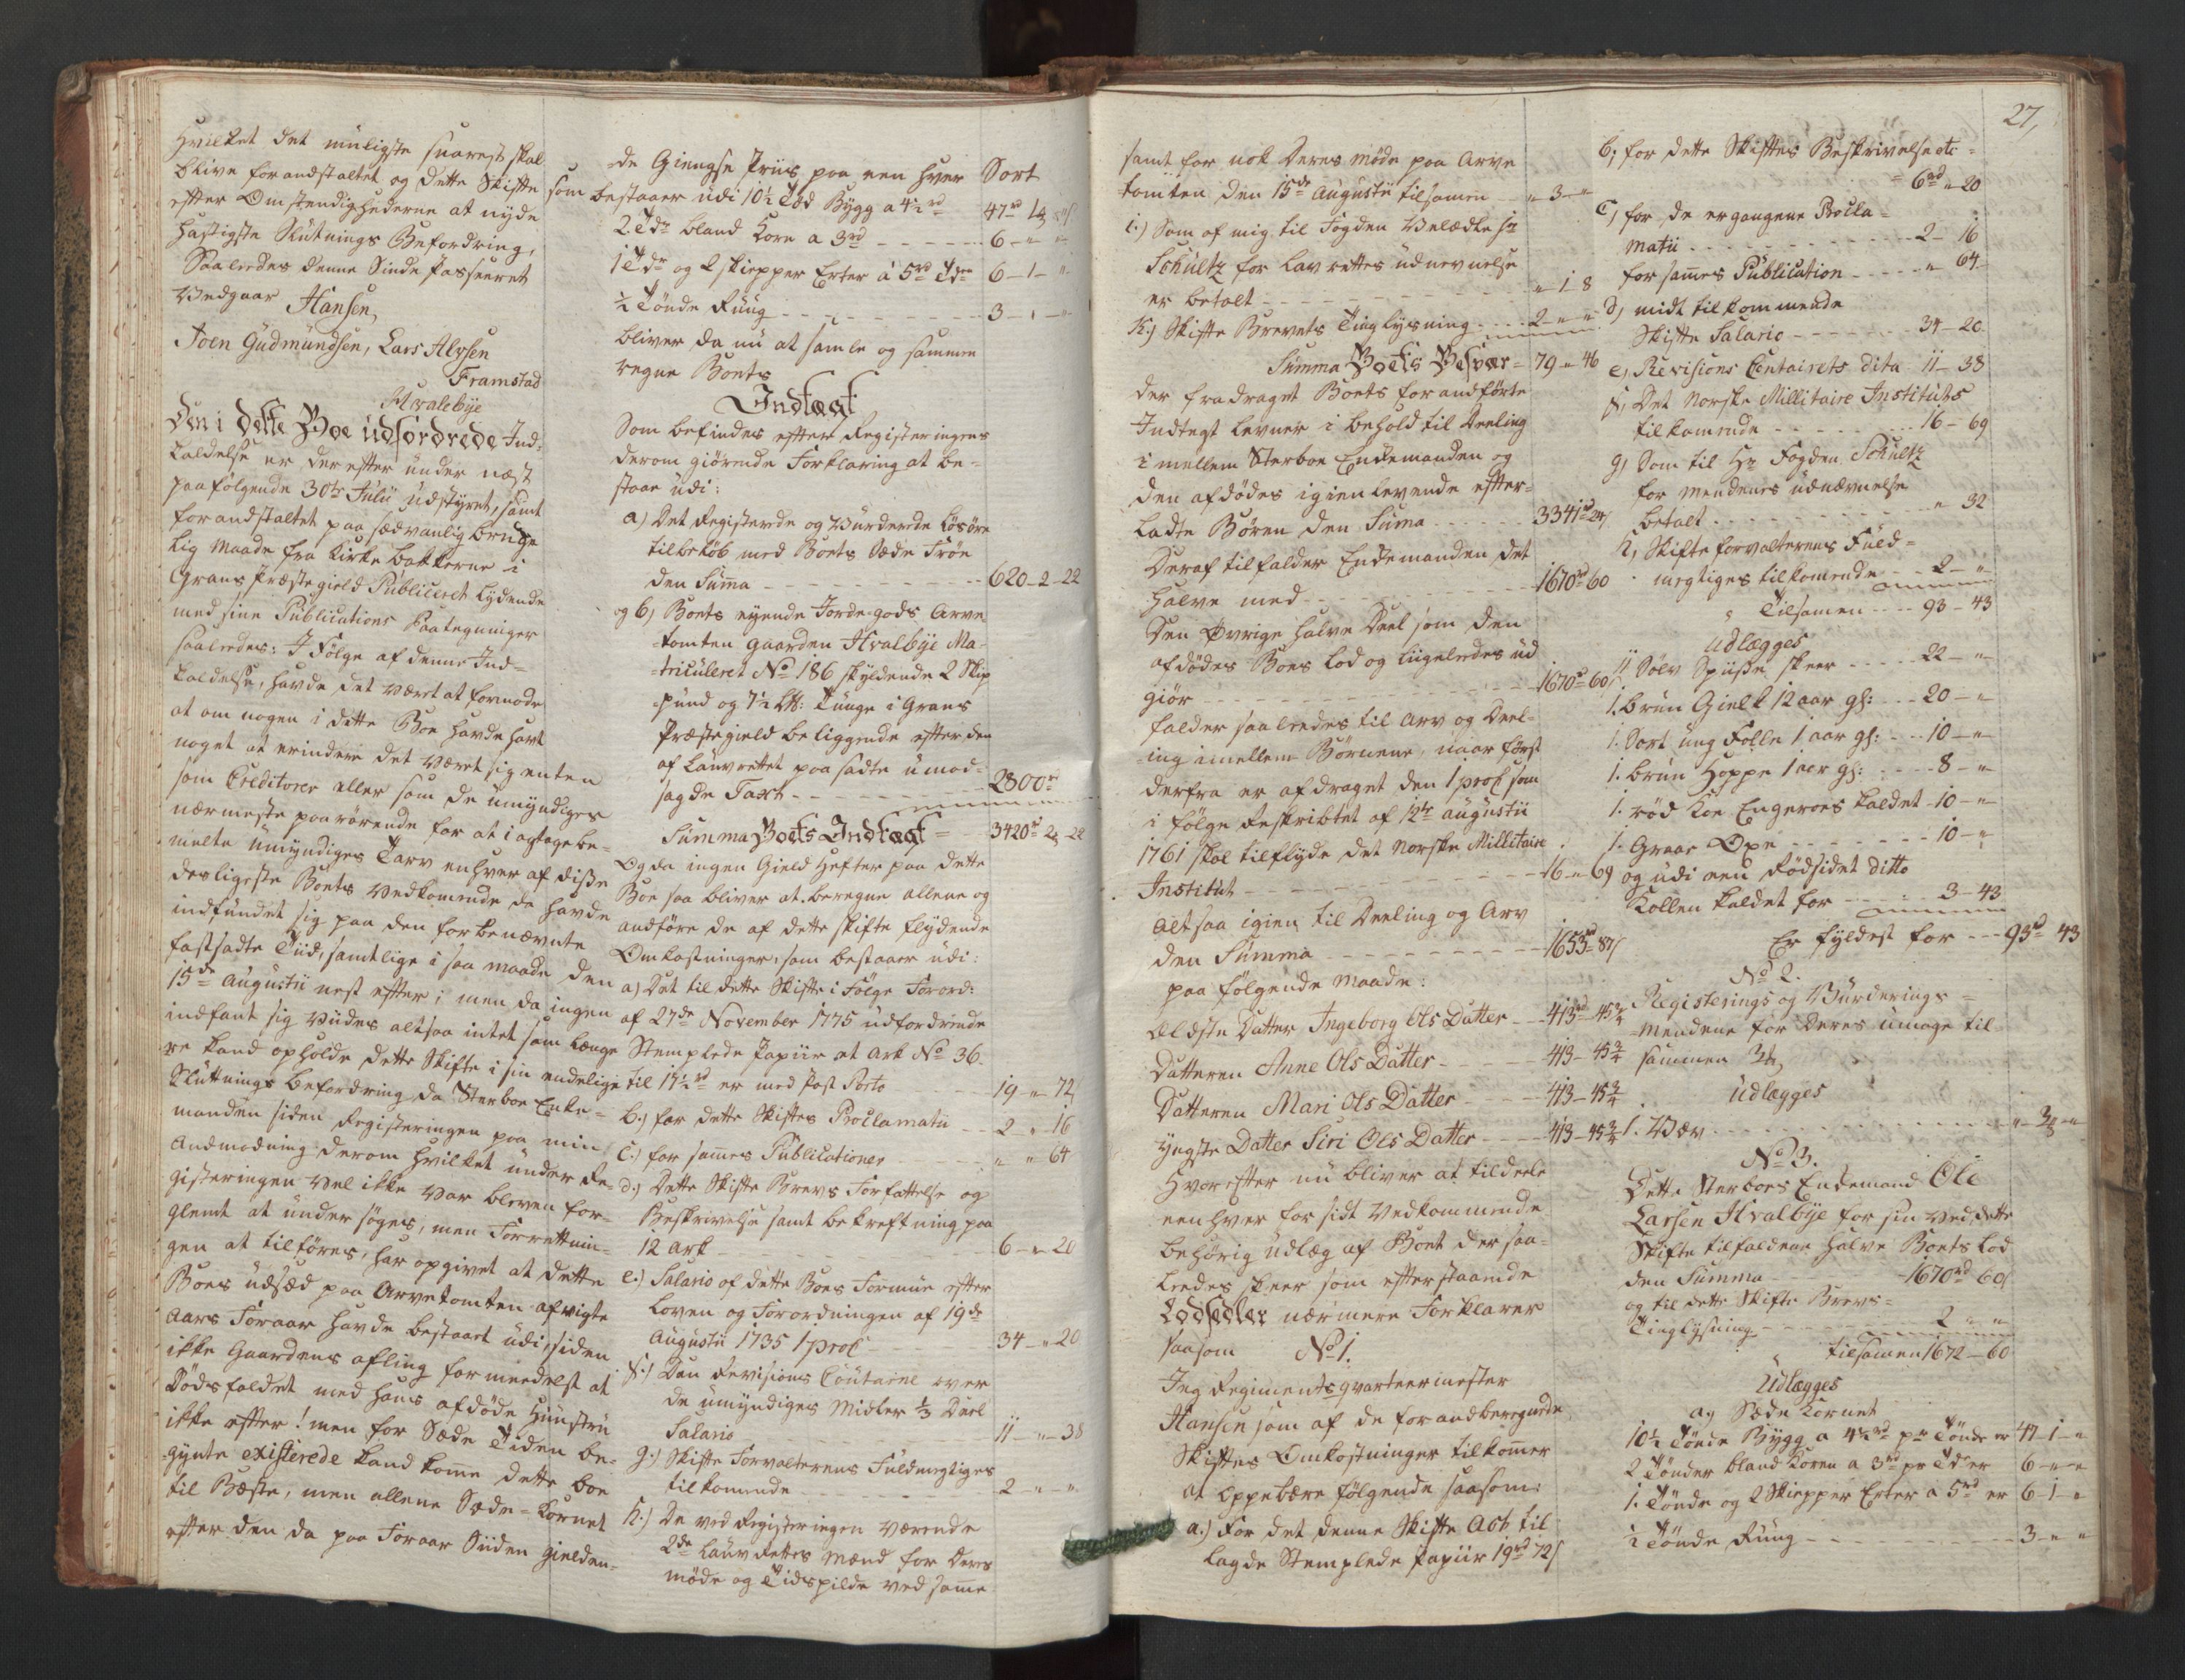 Hvilket det muligste snarest skal
blive forandstaltet og dette Skifte som
efter Omstendighederne at nyde
hastigste Slutnings Befordring,
Saaledes denne Sinde Passeeret
Vedgaar Hansen,
Joen Gudmundsen, Lars Alvsen
Framstad
Hvalebÿe
Den i dette Boe udfordrede Ind-
kaldelse er derefter under næst
paafølgende 30te Julii udstyret, samt
forandstaltet paa sædvanlig bruge
lig Maade fra Kirke bakkerne i
Grans Præstegield Publiceret lydende
med sine Publications Paategninger
saaledes: I Følge af denne Ind-
kaldelse, havde det været at formode
at om nogen i dette Boe havde havt
noget at erindre det været sig enten
som Creditorer eller som de umyndiges
nærmeste paarørende for at i agtage be-
melte umyndiges Tarv enhver af disse
desligeste Boets Vedkommende de havde
indfundet sig paa den forbenævnte
fastsadte Tiid, samtlige i saa maade den
15de Augustii nest efter; men da ingen
indfant sig viides altsaa intet som længe
re kand opholde dette Skifte i sin endelige
Sluttnings befordring da Sterboe Enke-
manden siden Registeringen paa min
Andmodning derom hvilket under Re-
gisteringen vel ikke var bleven for-
glemt at undersøges, men Forrettnin-
gen at tilføres, har opgivet at dette
Boes udsæd paa Arvetomten afvigte
Aars Foraar havde bestaaet udi, siden
ikke Gaardens afling formeedelst at
Dødsfaldet med hans afdøde Hustrue
ikke efter! men for Sæde Tiden be-
gynte existerede kand kome dette boe
til Beste, men allene Sæde-Kornet
efter den da paa Foraars Siiden gielden-
de Giengse Priis paa een hver Sort
bestaaer udi 10½ Tød Bygg a 4½ rd 47rd 1 "
2 Tdr bland Korn a 3rd - - - 6 - " "
1 Tdr og 2 skiepper Erter á 5rd Tdr 6 - 1 - "
½ Tønde Ruug - - - 3 - " - "
bliver da nu at samle og sammen
regne Boets
Indtægt
Som befindes efter Registeringens
derom giørende Forklaring at be-
staae udi:
a) Det Registerede og Vurderede Løsøre
tilbeløb med Boets Sæde Frøe
den Suma - - - 620 - 2 - 22
og b) Boets eyende Jordegods Arve
-tomten gaarden Hvalbÿe Ma-
-triculeret No 186 skyldende 2 Skip
pund og 7½ L℔: Tunge i Grans
Præstegield beliggende efter den
af Lauvrettet paasadte umod-
sagde Taxt - - - 2800rd
Summa Boets Indtægt = 3420rd 2 22
Og da ingen Gield Hefter paa dette
Boe saa bliver at beregne allene og
andføre de af dette skifte flydende
Omkostninger, som bestaaer udi:
a) Det til dette Skifte i Følge Forord:
af 27de November 1775 udfordrende
Stemplede Papiir at Ark No 36
til 17½ rd er med Post Porto 19 - " 72
b.) for dette Skiftes Proclamata - - 2 " 16
c.) for sames Publicationer " " 64
d.) Dette Skifte Brevs Forfattelse og
Beskrivelse samt bekreftning paa
12 Ark - - - 6 - " 20
e.) Salario af dette Boes Formue efter
Loven og Forordningen af 19de
Augustii 1735 1 proC - - - 34 - " 20
f.) Den Revisions Coutarne over
de umyndiges Midler ⅓ Deel
Salario 11 - " - 38
g.) Skifte Forvalterens Fuldmegtiges
tilkomende - - - 2 - " - "
h.) De ved Registeringen værende
2de Lauv Rettes mænd for Deres
møde og Tidsspilde ved same
27,
samt for nok Deres møde paa Arve
tomten den 15de Augustii tilsamen - " 3 - "
i.) Som af mig til Fogden Velædle Hr
Schultz for Lavrettes udnevnelse
er betalt - - - " 1 - 8
K.) Skifte Brevets Tinglysning - - - 2 - " "
Summa Boets Besvær = 79 " 46
der fradraget Boets forandførte
Indtegt levner i behold til Deeling
i mellem Sterboe Enkemanden og
den afdødes igienlevende efter-
ladte Børn den Suma - - - 3341rd 24
Deraf tilfalder Enkemanden det
halve med - - - 1670rd 60
Den Øvrige halve Deel som den
afdødes Boes Lod og liigeledes ud
giør - - - 1670rd 60
falder saaledes til Arv og Deel-
-ing imellem Børnene, naar først
derfra er afdraget den 1 proC som
i følge Reskribtet af 12te Augustii
1761 skal tilflyde det Norske Millitaire
Institut - - - 16 " 69
Altsaa igien til Deeling og Arv
den Summa - - - 1653rd 87
paa følgende maade:
Ældste Datter Ingeborg Ols Datter - - 413rd 45¾
Datteren Anne Ols Datter - - - 413 - 45¾
Datteren Mari Ols Datter - - - 413 - 45¾
yngste Datter Siri Ols Datter - - - 413 - 45¾
Hvorefter nu bliver at tildeele
eenhver for sidt Vedkommende
behørig udlæg af Boet der saa-
leedes skeer som efterstaaende
Lodsedler nærmere Forklarer
saasom No 1.
Jeg Regimentsqvarteermester
Hansen som af de forandberegnede
Skiftes Omkostninger tilkommer
at oppebære følgende saasom:
a.) For det denne Skifte Act til
lagde Stemplede Papiir 19rd 72
b; for dette Skiftes Beskrivelse etc =
" 6rd " 20
c) for de ergangene Procla-
matii - - - 2 - 16
for sames Publication - - - " 64
d) midt tilkommende
Skifte Salario - - - 34 - 20
e, Revisions Contairets dito 11 - 38
f, Det Norske Millitaire Instituts
tilkomende - - - 16 - 69
g) Som til Hr Fogden Schultz
for mendenes udnævnelse
betalt - - - " 32
h, Skifteforvalterens Fuld-
megtiges tilkomende - - 2 - "
Tilsamen - - - 93 - 43
Udlægges
11 Sølv Spiise skeer - - - 22 - "
1. brun Gield 12 aar gl: - - 20 - "
1. Sort ung Følle 1 aar gl: - - 10 - "
1. brun Hoppe 1 aar gl: - - - 8 - "
1. rød Koe Engeroes kaldet - 10 - "
1. Graae Oxe - - - 10 - "
og udi een Rødsidet ditto
Kollen kaldet for - - - 3 - 43
Er fyldest for - - - 93rd 43
No 2.
Registerings og Vurderings-
-Mendene for Deres umage til
sammen 3
Udlægges
1. Væv - - - " 3 "
No 3.
Dette Sterboes Enkemand Ole
Larsen Hvalbÿe for sin ved dette
Skifte tilfaldne halve Boets Lod
den Summa - - - 1670rd 60
og til dette Skifte Brevs-
Tinglysning - - - 2 " "
tilsamen 1672 - 60
Udlægges
a) Sæde Kornet
10½ Tønde Bygg a 4½ rd pr Tønde er 47 - 1 - "
2 Tønder bland Korn a 3rd pr Tdr er 6 - " - "
1. Tønde og 2 Skiepper Erter a 5rd er 6 - 1 "
½ Tønde Ruug - - - 3 - " "